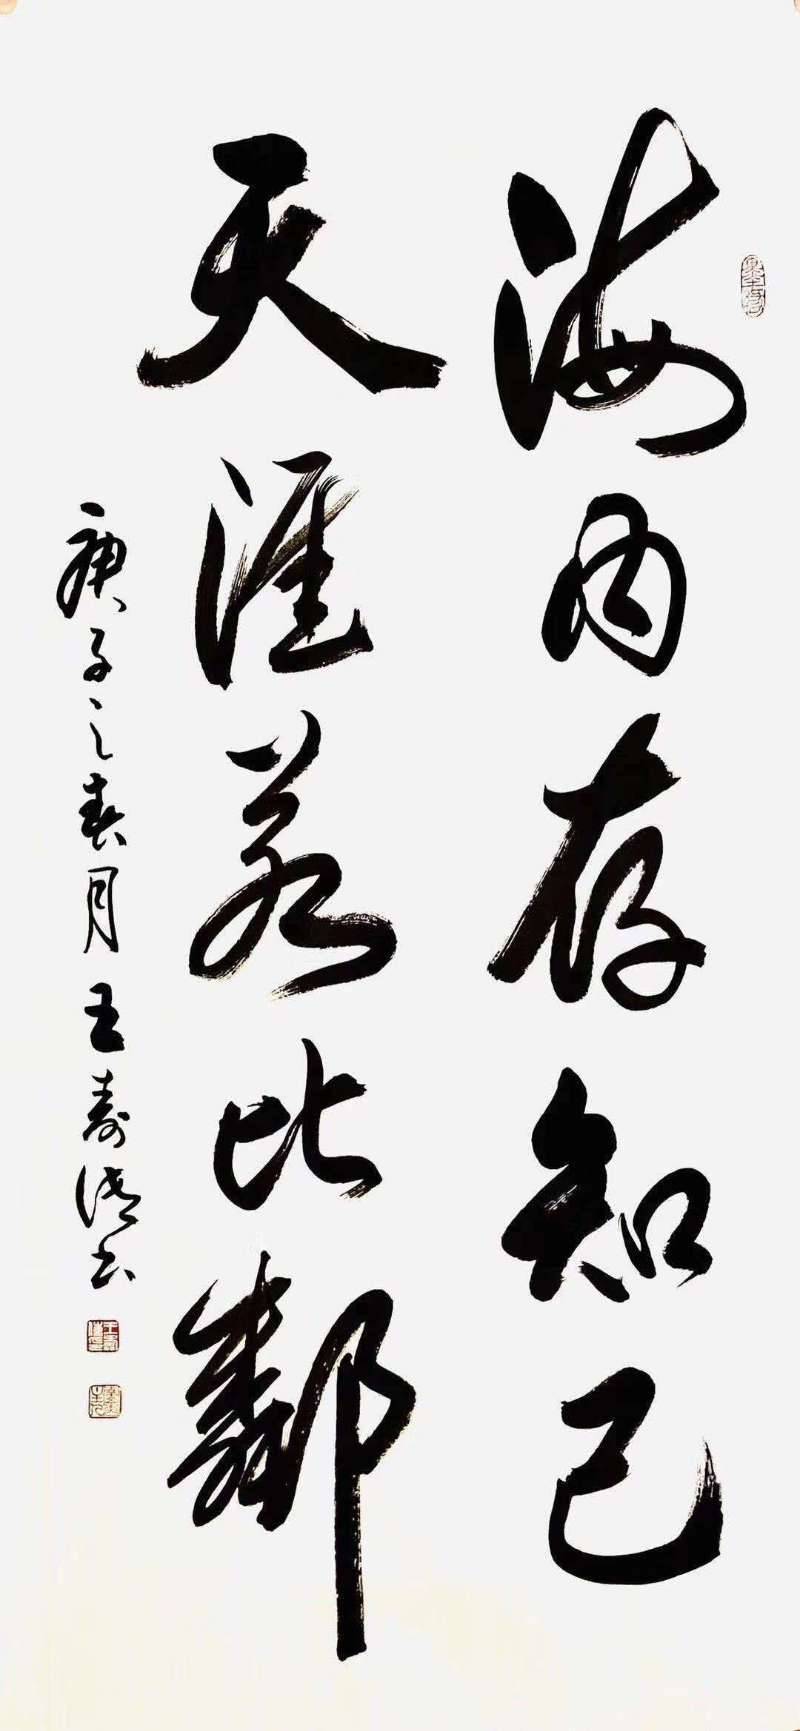 海内存知己
天涯若比鄰
庚子之春月王寿儒书